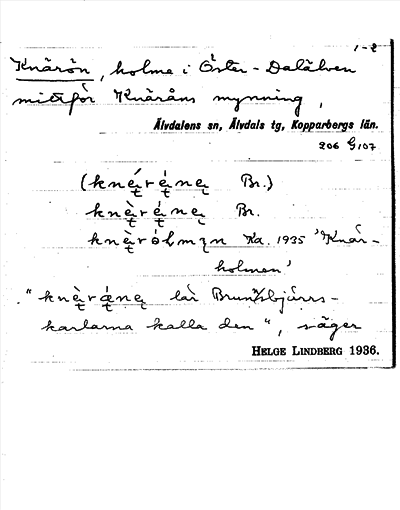 1-2
Knärön, holme i Öster-Dalälven
mittför Knäråns mynning,
Älvdalens sn, Älvdals tg, Kopparbergs län.
206 G107
Br.)
Br.
Ka. 1935 'Knär-
holmen'
lär Brunnsbjärrs-
karlarna kalla den", säger
HELGE LINDBERG 1936.